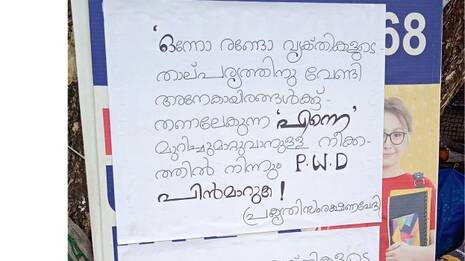 'ഒന്നോ രണ്ടോ വ്യക്തികളുടെ
താല്പര്യത്തിനു വേണ്ടി
അനേകായിരങ്ങൾക്ക്
തണലേകുന്ന 'പുന്നെ'
മുറിച്ചുമാറ്റുവാനുള്ള നീക്ക-
ത്തിൽ നിന്നും P.W.D
പിൻമാറുക!
പ്രകൃതിസംരക്ഷണവേദി
68